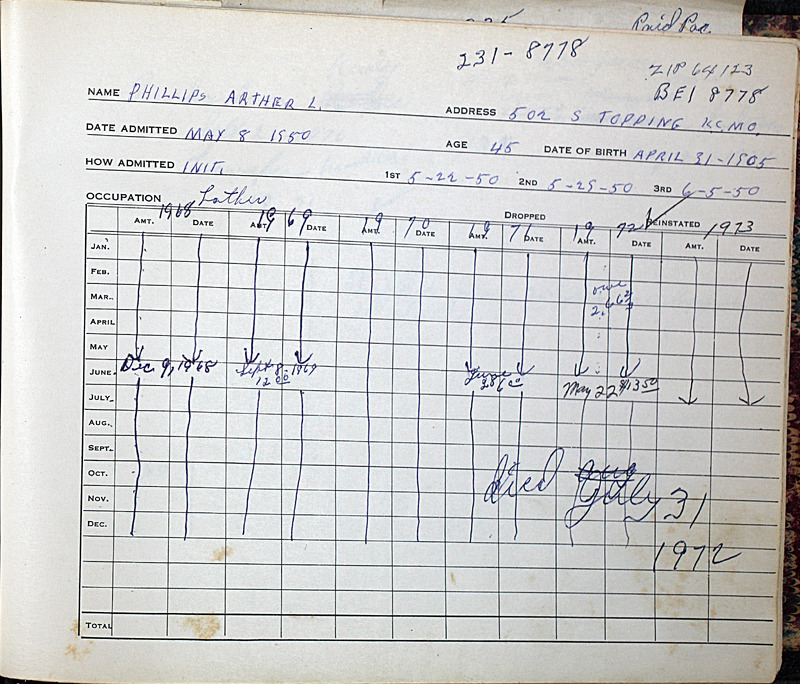 Paid Par
231-8778
ZIP 64123
BE1 8778
NAME PHILLIPS ARTHER L.
ADDRESS 502 S TOPPING K.C.MO.
DATE ADMITTED MAY 8 1950
AGE 45 DATE OF BIRTH APRIL 31-1905
HOW ADMITTED INIT.
1ST 5-22-50 2ND 5-29-50 3RD 6-5-50
OCCUPATION Lather
DROPPED REINSTATED
1968 1969 1970 1971 1972 1973
AMT. DATE AMT. DATE AMT. DATE AMT. DATE AMT. DATE AMT. DATE
JAN.
FEB.
MAR. owe
2.66
APRIL
MAY
JUNE Dec 9, 1968 Sept 8-1969
12 00 June
28 6 00
May 22 $13.50
JULY
AUG.
SEPT.
OCT. died aug
NOV. July 31
DEC.
1972
TOTAL